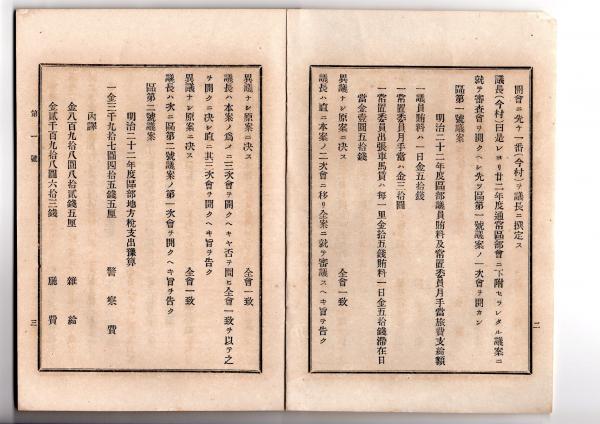 二
開會ニ先ケ一番(今村)ヲ議長ニ撰定ス
議長(今村)曰是ヨリ廿二年度通常區部會ニ下附セラレタル議案ニ
就テ審査會ヲ開クヘシ先ツ區第一號議案ノ一次會ヲ開カン
區第一號議案
明治二十二年度區部議員賄料及常置委員月手當旅費支給額
一議員賄料ハ一日金五拾錢
一常置委員月手當ハ金三拾圓
一常置委員出張車馬賃ハ每一里金拾五錢賄料一日金五拾錢滯在日
當金壹圓五拾錢
異議ナシ原案ニ決ス 全會一致
議長ハ直ニ本案ノ二次會ニ移リ全案ニ就テ審議スヘキ旨ヲ告ク
異議ナシ原案ニ決ス 全會一致
議長ハ本案ノ爲メニ三次會ヲ開クヘキヤ否ヲ問ヒ全會一致ヲ以テ之
ヲ開クニ決シ直ニ其三次會ヲ開クヘキ旨ヲ告ク
異議ナシ原案ニ決ス 全會一致
議長ハ次ニ區第二號議案ノ第一次會ヲ開クヘキ旨ヲ告ク
區第二號議案
明治二十二年度區部地方稅支出豫算
一金三千九拾七圓四拾五錢五厘 警察費
內譯
金八百九拾八圓八拾貳錢五厘 雜給
金貳千百九拾八圓六拾三錢 廳費
第一號
三